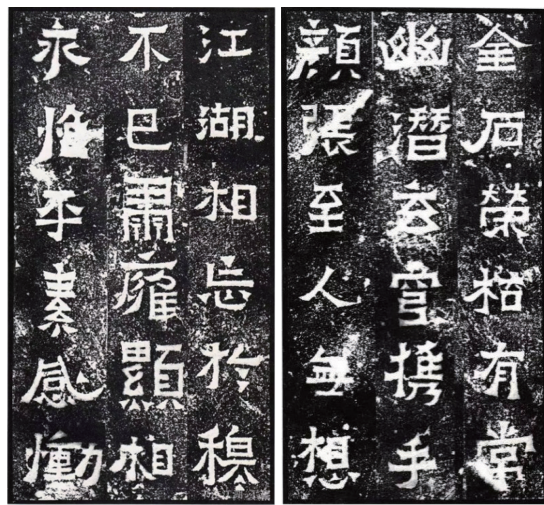 金石榮枯有常
幽潜玄穹携手
顏張至人無想
江湖相忘於穆
不已肅雍顯相
永惟平素感慟